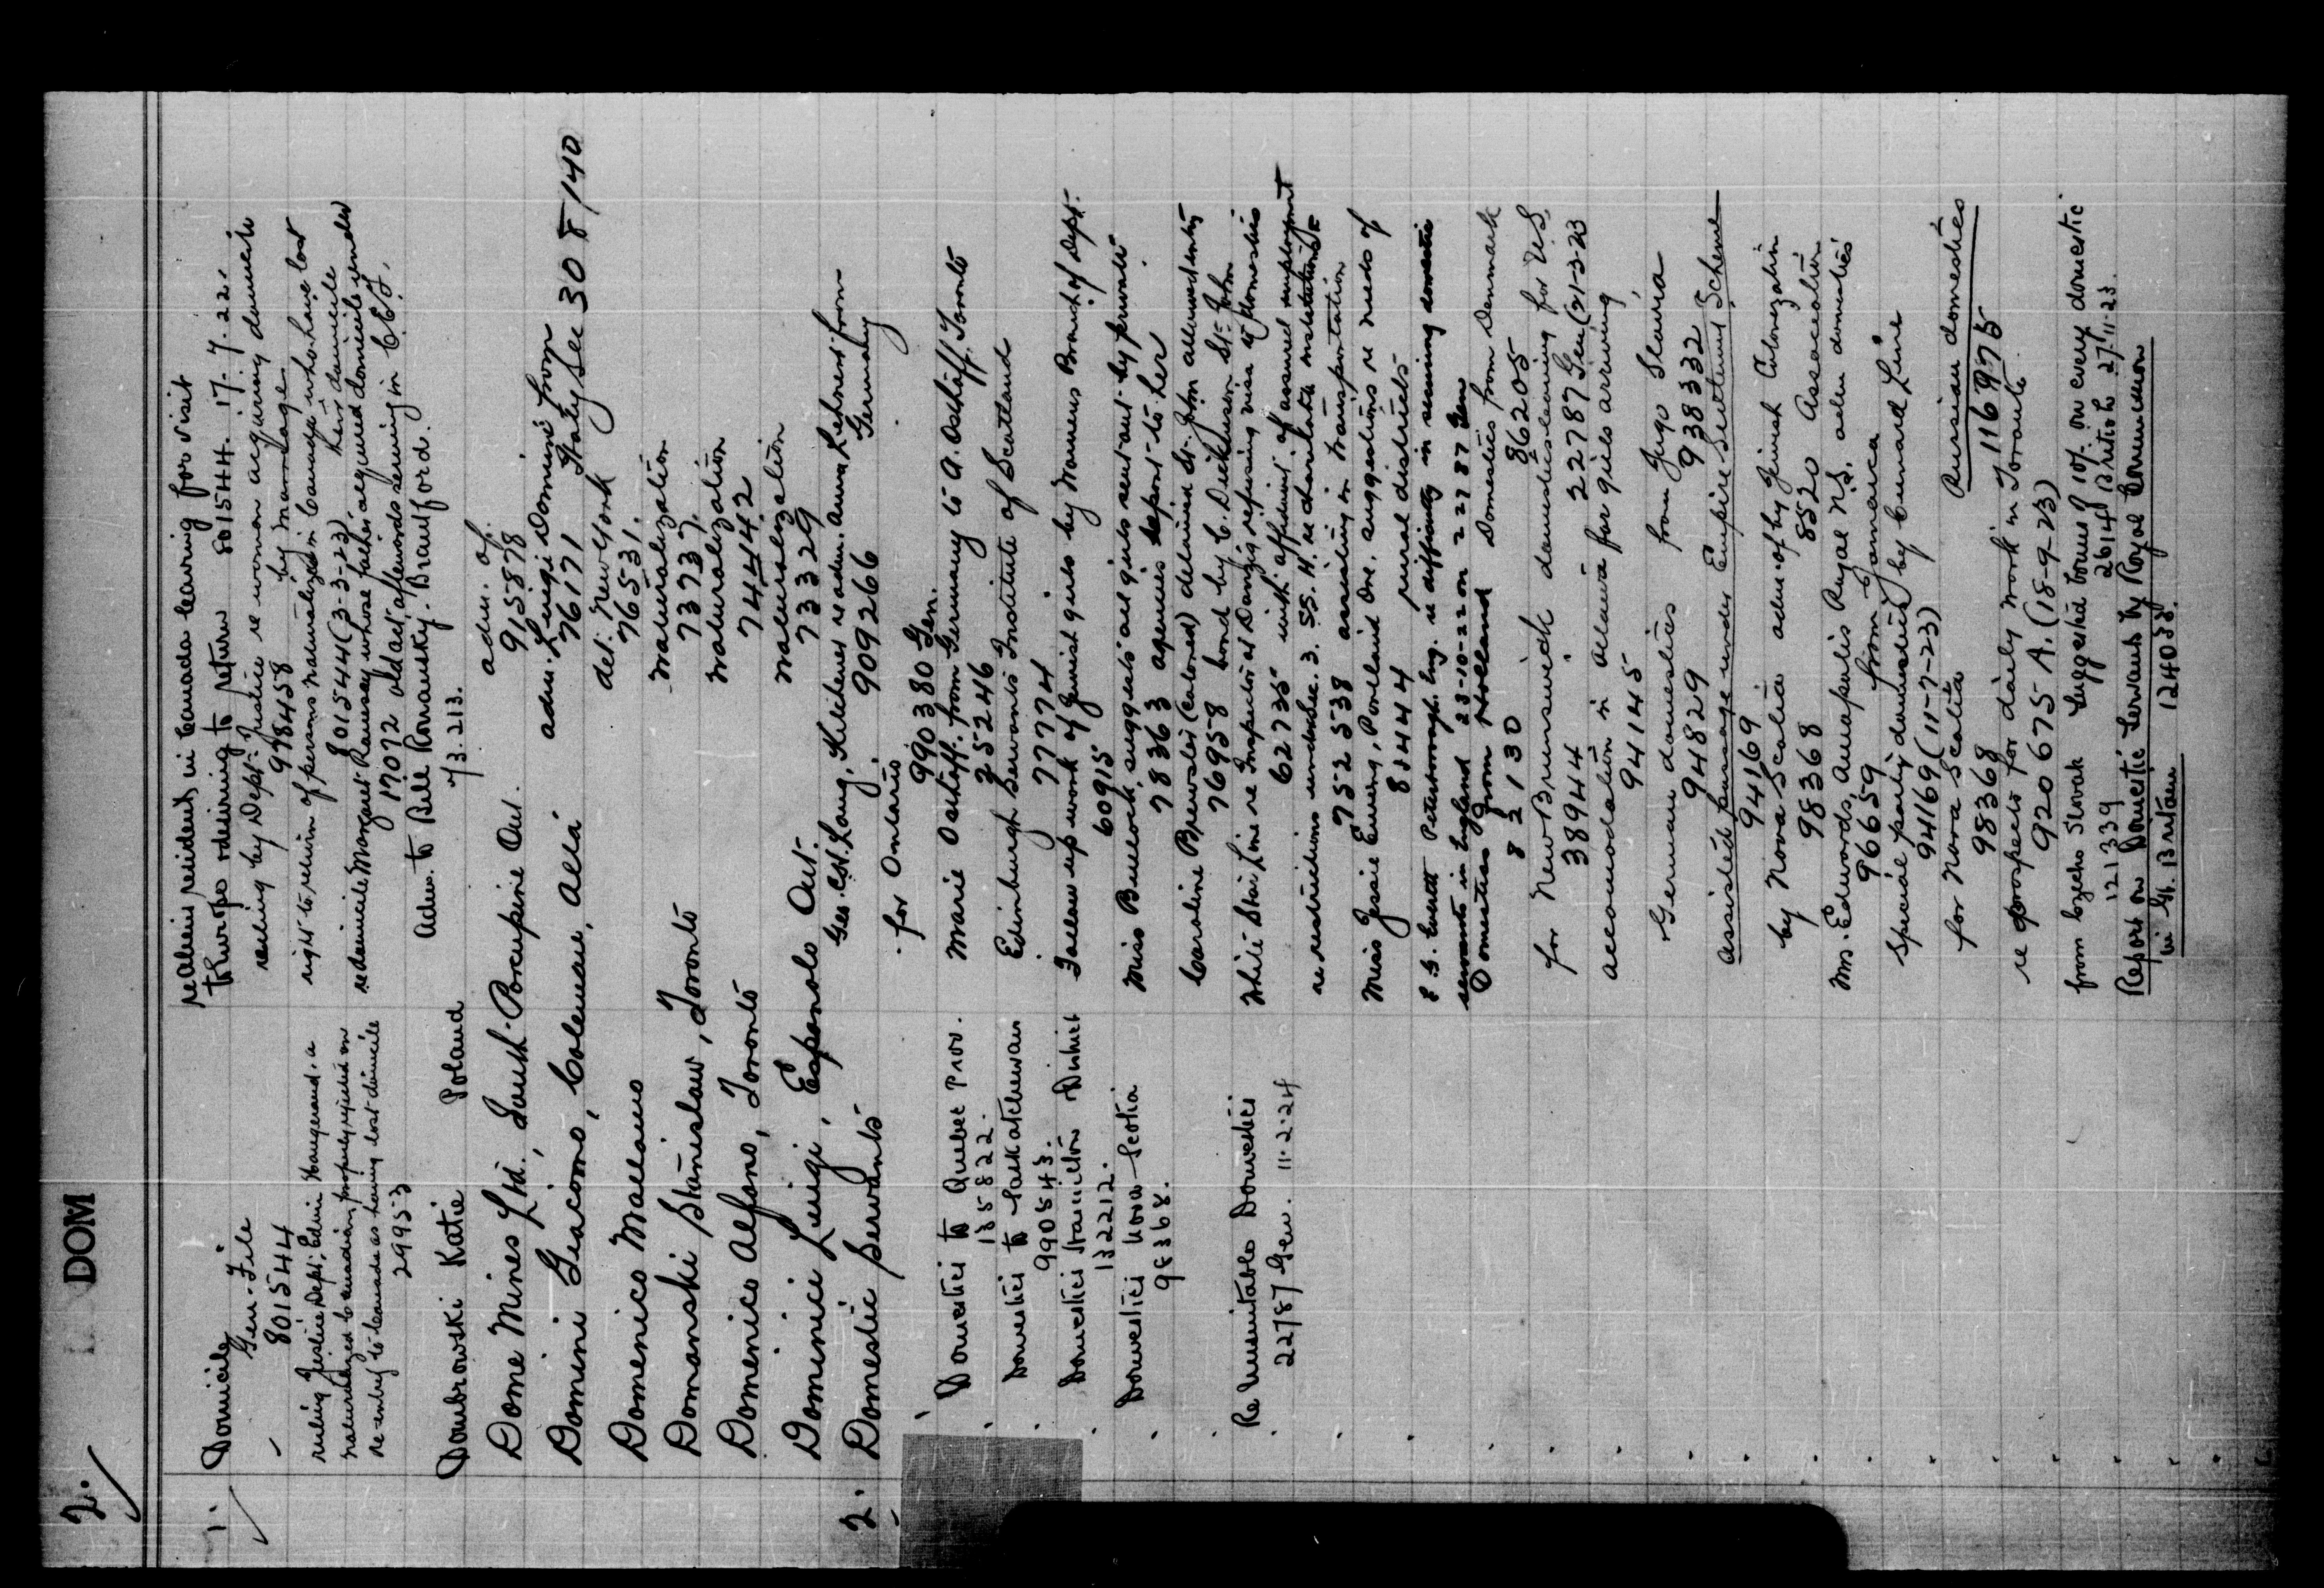 2.
DOM
1. Domicile
Gen. File
801544
ruling Justice Dept; Edwin Haugerand, a
naturalized Canadian, properly rejected on
re-entry to Canada as having lost domicile
29953
re aliens resident in Canada leaving for visit
to Europe & desiring to return 801544. 17.7.22.
ruling by Dept. Justice re women acquiring domicile
998458 by marriage
right to return of persons naturalized in Canada who have lost
801544 (3-3-23) their domicile
re domicile Margaret Ramsay whose father acquired domicile under
17072 old act afterwards serving in C.E.F.
Dombrowski Katie Poland
Adm. to Bill Romansky. Brantford.
73213.
Dome Mines Ltd., South Porcupine Ont.
adm. of.
915878
Domini Giacomo, Coleman, Alta
adm. Luigi Domini from
76171 Italy See 30 8/140
Domenico Mallano
det. New York
76531.
Domanski Stanislaw, Toronto
naturalization
73737.
Domenico Alfano, Toronto
naturalization
74442
Dominici Luigi, Espanola Ont.
naturalization
73329
2. Domestic Servants
Geo. C.H. Lang, Kitchener re adm. Anna Lehnert from
909266 Germany
for Ontario
990380 Gen.
Domestics to Quebec Prov.
135822.
Marie Osthaff. from Germany to A. Osthaff, Toronto
252246
Domestics to Saskatchewan
990543.
Edinburgh Servants Institute of Scotland
77774
Domestics Hamilton District
132212.
Follow up work of Jewish girls by Womens Branch of Dept.
60915
Domestics Nova Scotia
98368.
Miss Bullock, suggests all girls sent out by private
78363 agencies report to her
Caroline Brewster (colored) detained St. John allowed entry
76958 bond by C. Dickinson St. John
Re Unsuitable Domestics
22787 Gen. 11.2.24
White Star Line re Inspector at Danzig refusing visa of domestics
62735 with affidavit of assured employment
re restrictions under Sec. 3. SS. H. re charitable institutions
752538 assisting in transportation
Miss Jessie Ewing, Portland Ore. suggestions re needs of
81444 rural districts
F. G. Everett Peterborough. Eng. re difficulty in securing domestic
servants in England 23-10-22 on 22787 Gen
Domestics from Holland Domestics from Denmark
82130 86205
for New Brunswick domestics leaving for U.S.
38944 22787 Gen (21-3-23
accomodation in Ottawa for girls arriving
94145
German domestics from Jugo Slavia
94829 938332
Assisted passage under Empire Settlement Scheme
94169
by Nova Scotia adm. of by Jewish Colonization
98368 8520 Association
Mrs. Edwards, Annapolis Royal N.S. adm domestics
96659 from Jamaica
Special party domestics by Cunard Line
94169 (11-7-23)
for Nova Scotia Russian domestics
98368 116975
re prospects for daily work in Toronto
920675 A. (18-9-23)
from Czecho Slovak Suggested bonus of 10/. on every domestic
121339 2614 British 27.11.23.
Report on Domestic Servants by Royal Commission
in Gt. Britain 124053.